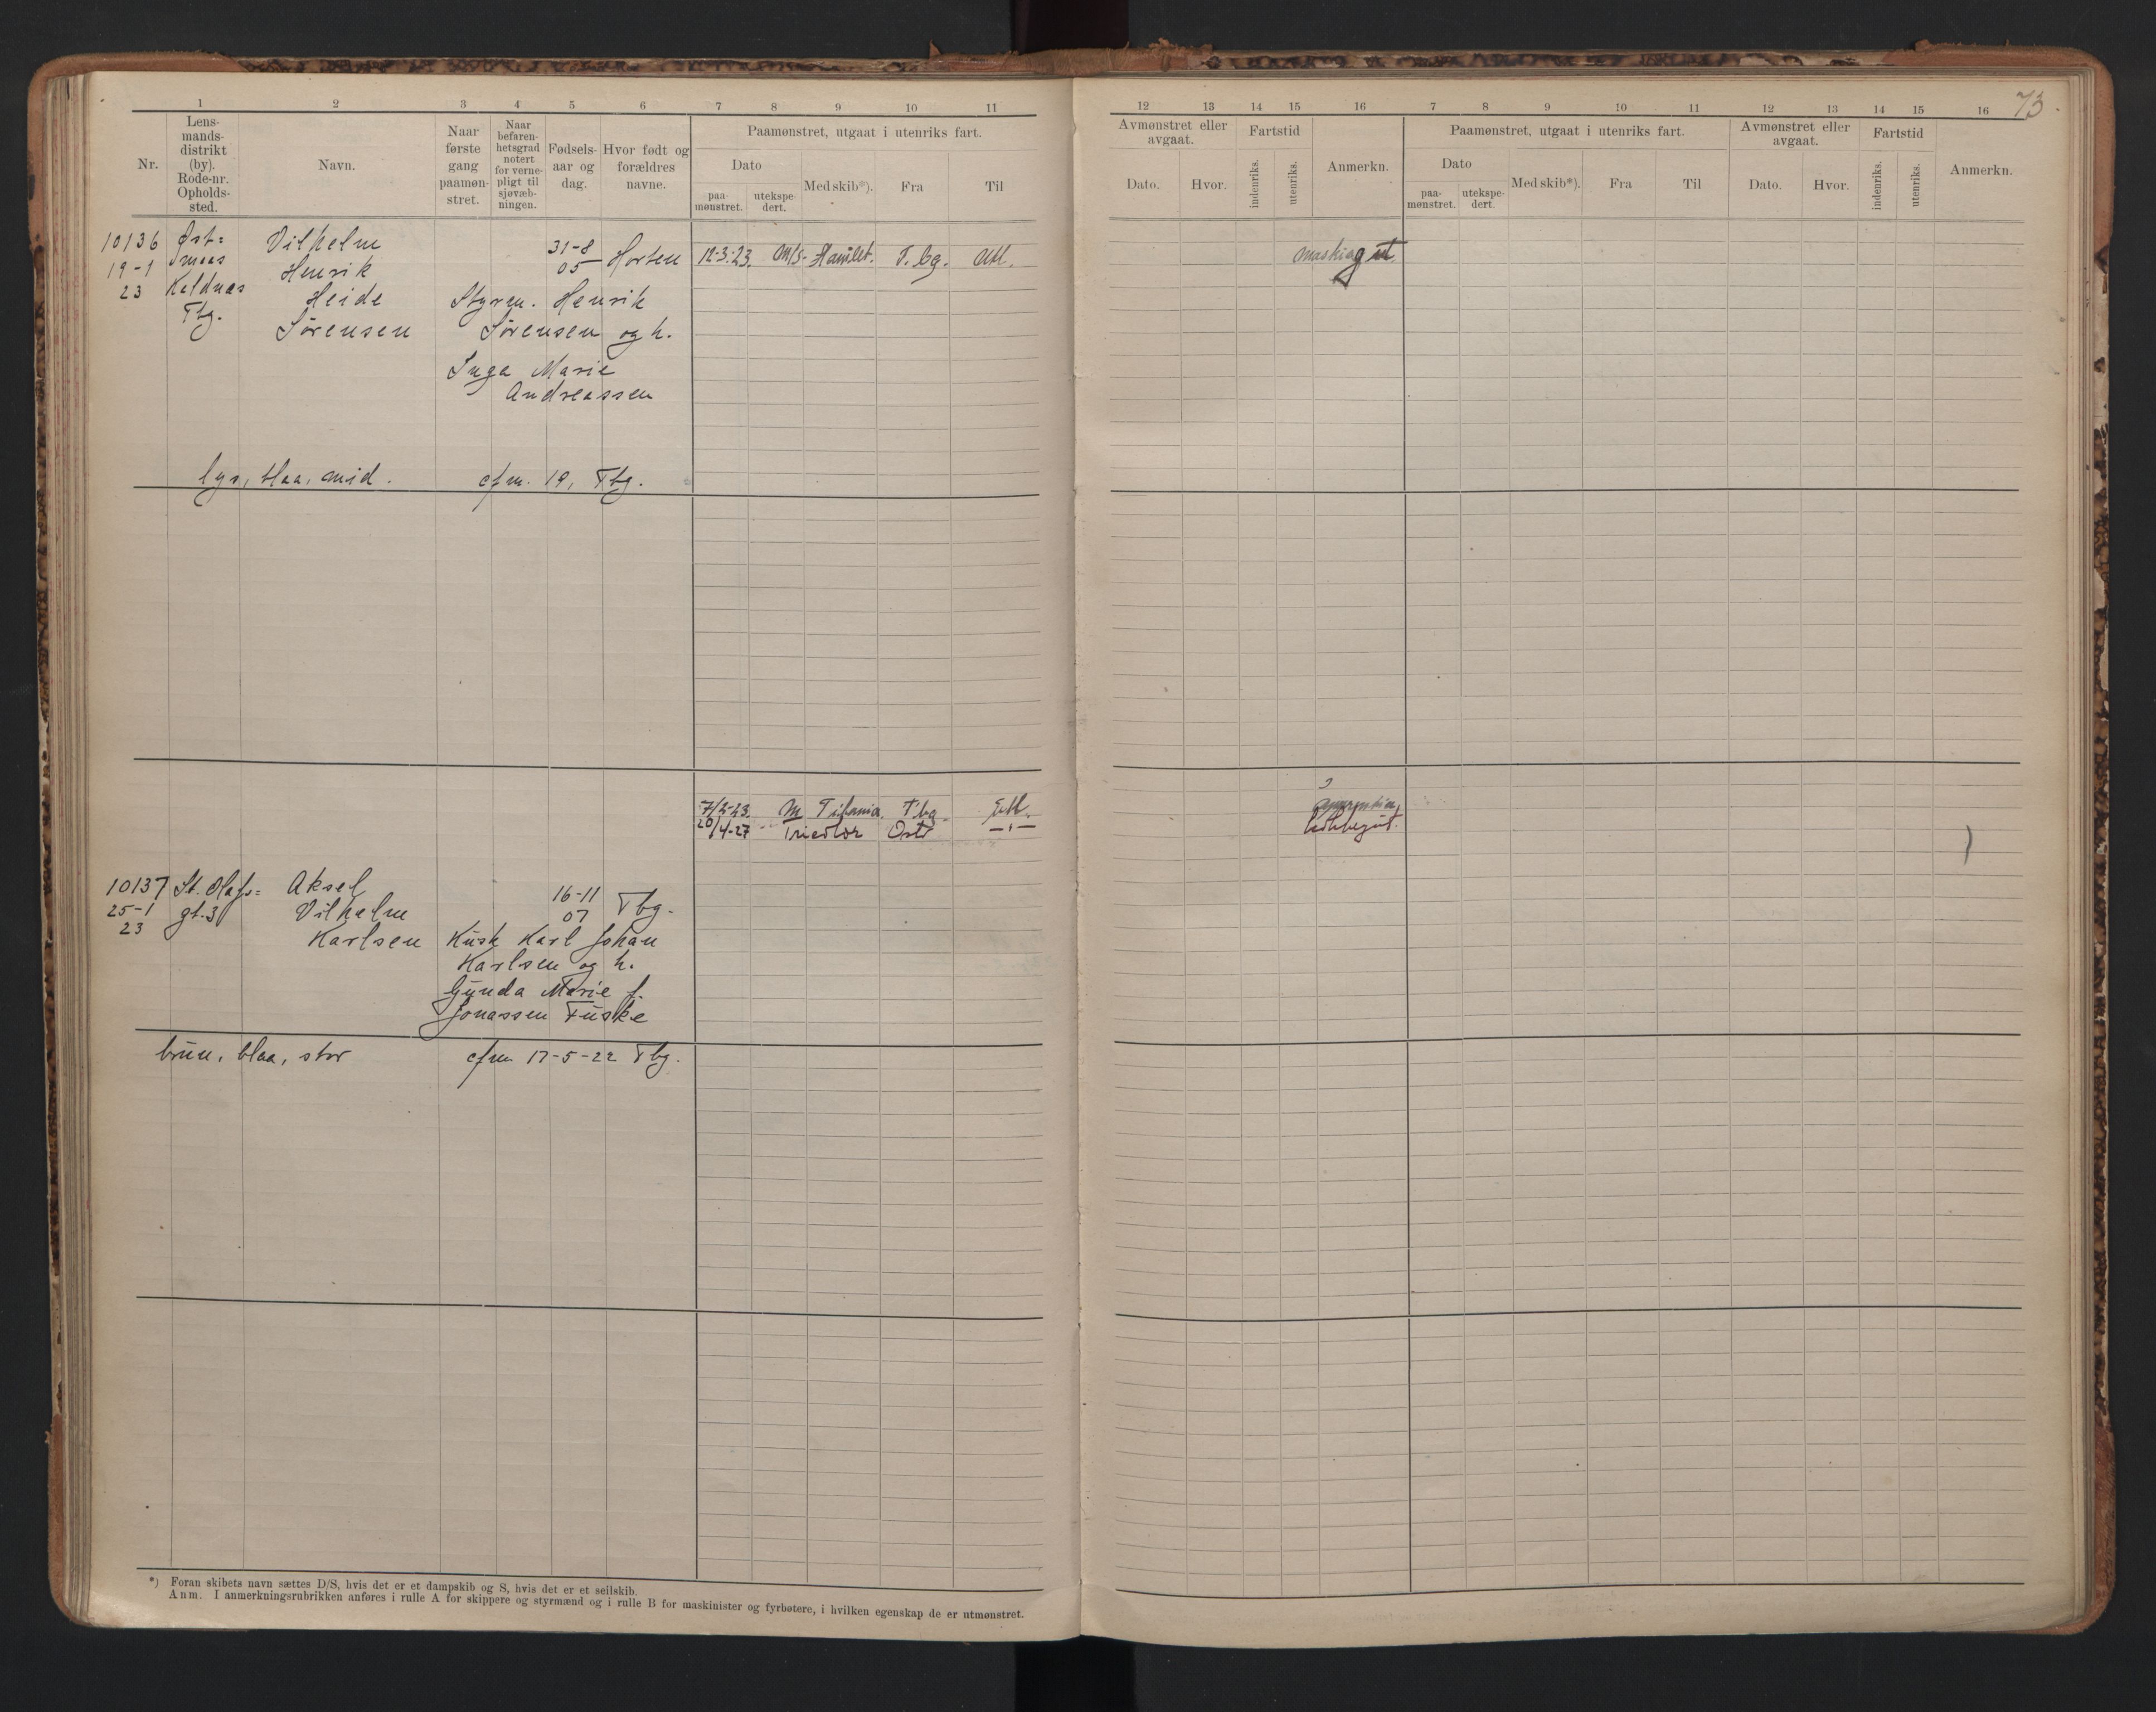 73
1 2 3 4 5 6 7 8 9 10 11
12 13 14 15 16 7 8 9 10 11 12 13 14 15 16
Nr.
Lens-
mands-
distrikt
(by).
Rode-nr.
Opholds-
sted.
Navn.
Naar
første
gang
paamøn-
stret.
Naar
befaren-
hetsgrad
notert
for verne-
pligt til
sjøvæb-
ningen.
Fødsels-
aar og
dag.
Hvor født og
forældres
navne.
Paamønstret, utgaat i utenriks fart.
Dato
paa-
mønstret.
utekspe-
dert.
Med skib*).
Fra
Til
Avmønstret eller
avgaat.
Dato.
Hvor.
Fartstid
indenriks.
utenriks.
Anmerkn.
Paamønstret, utgaat i utenriks fart.
Dato
paa-
mønstret.
utekspe-
dert.
Med skib*).
Fra
Til
Avmønstret eller
avgaat.
Dato.
Hvor.
Fartstid
indenriks.
utenriks.
Anmerkn.
10136 Øst= Vilhelm 31-8 Horten 12-3-23. M/S- Hamlet. T.bg. Utl. maskingut.
19-1 Henrik 05
23 Kaldnæs Heide Styrm. Henrik
Tbg. Sørensen Sørensen og h.
Inga Marie
Andreassen
lys, blaa, mid. cfm. 19, Tbg.
7/2-23 M Titania. Tbg. Utl.
20/4-27 " Tricolor Oslo —"—
10137 St. Olafs= Aksel 16-11 Tbg.
25-1 gt. 3 Vilhelm 07
23 Karlsen Kusk Karl Johan
Karlsen og h.
Gunda Marie f.
Jonassen Fuske
brun, blaa, stor cfm 17-5-22 Tbg.
*) Foran skibets navn sættes D/S, hvis det er et dampskib og S, hvis det er et seilskib.
Anm. I anmerkningsrubrikken anføres i rulle A for skippere og styrmænd og i rulle B for maskinister og fyrbøtere, i hvilken egenskap de er utmønstret.